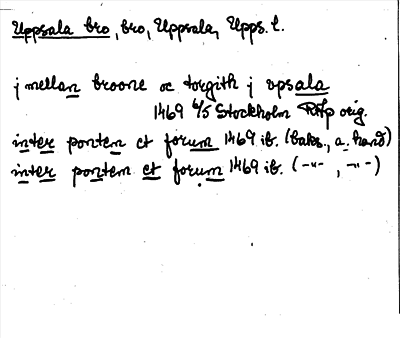 Uppsala bro, bro, Uppsala, Upps. l.
j mellan broone oc torgith j vpsala
1469 6/5 Stockholm RAp orig.
inter pontem et forum 1469 ib. (baks., a. hand)
inter pontem et forum 1469 ib. ( -"- , -"- )